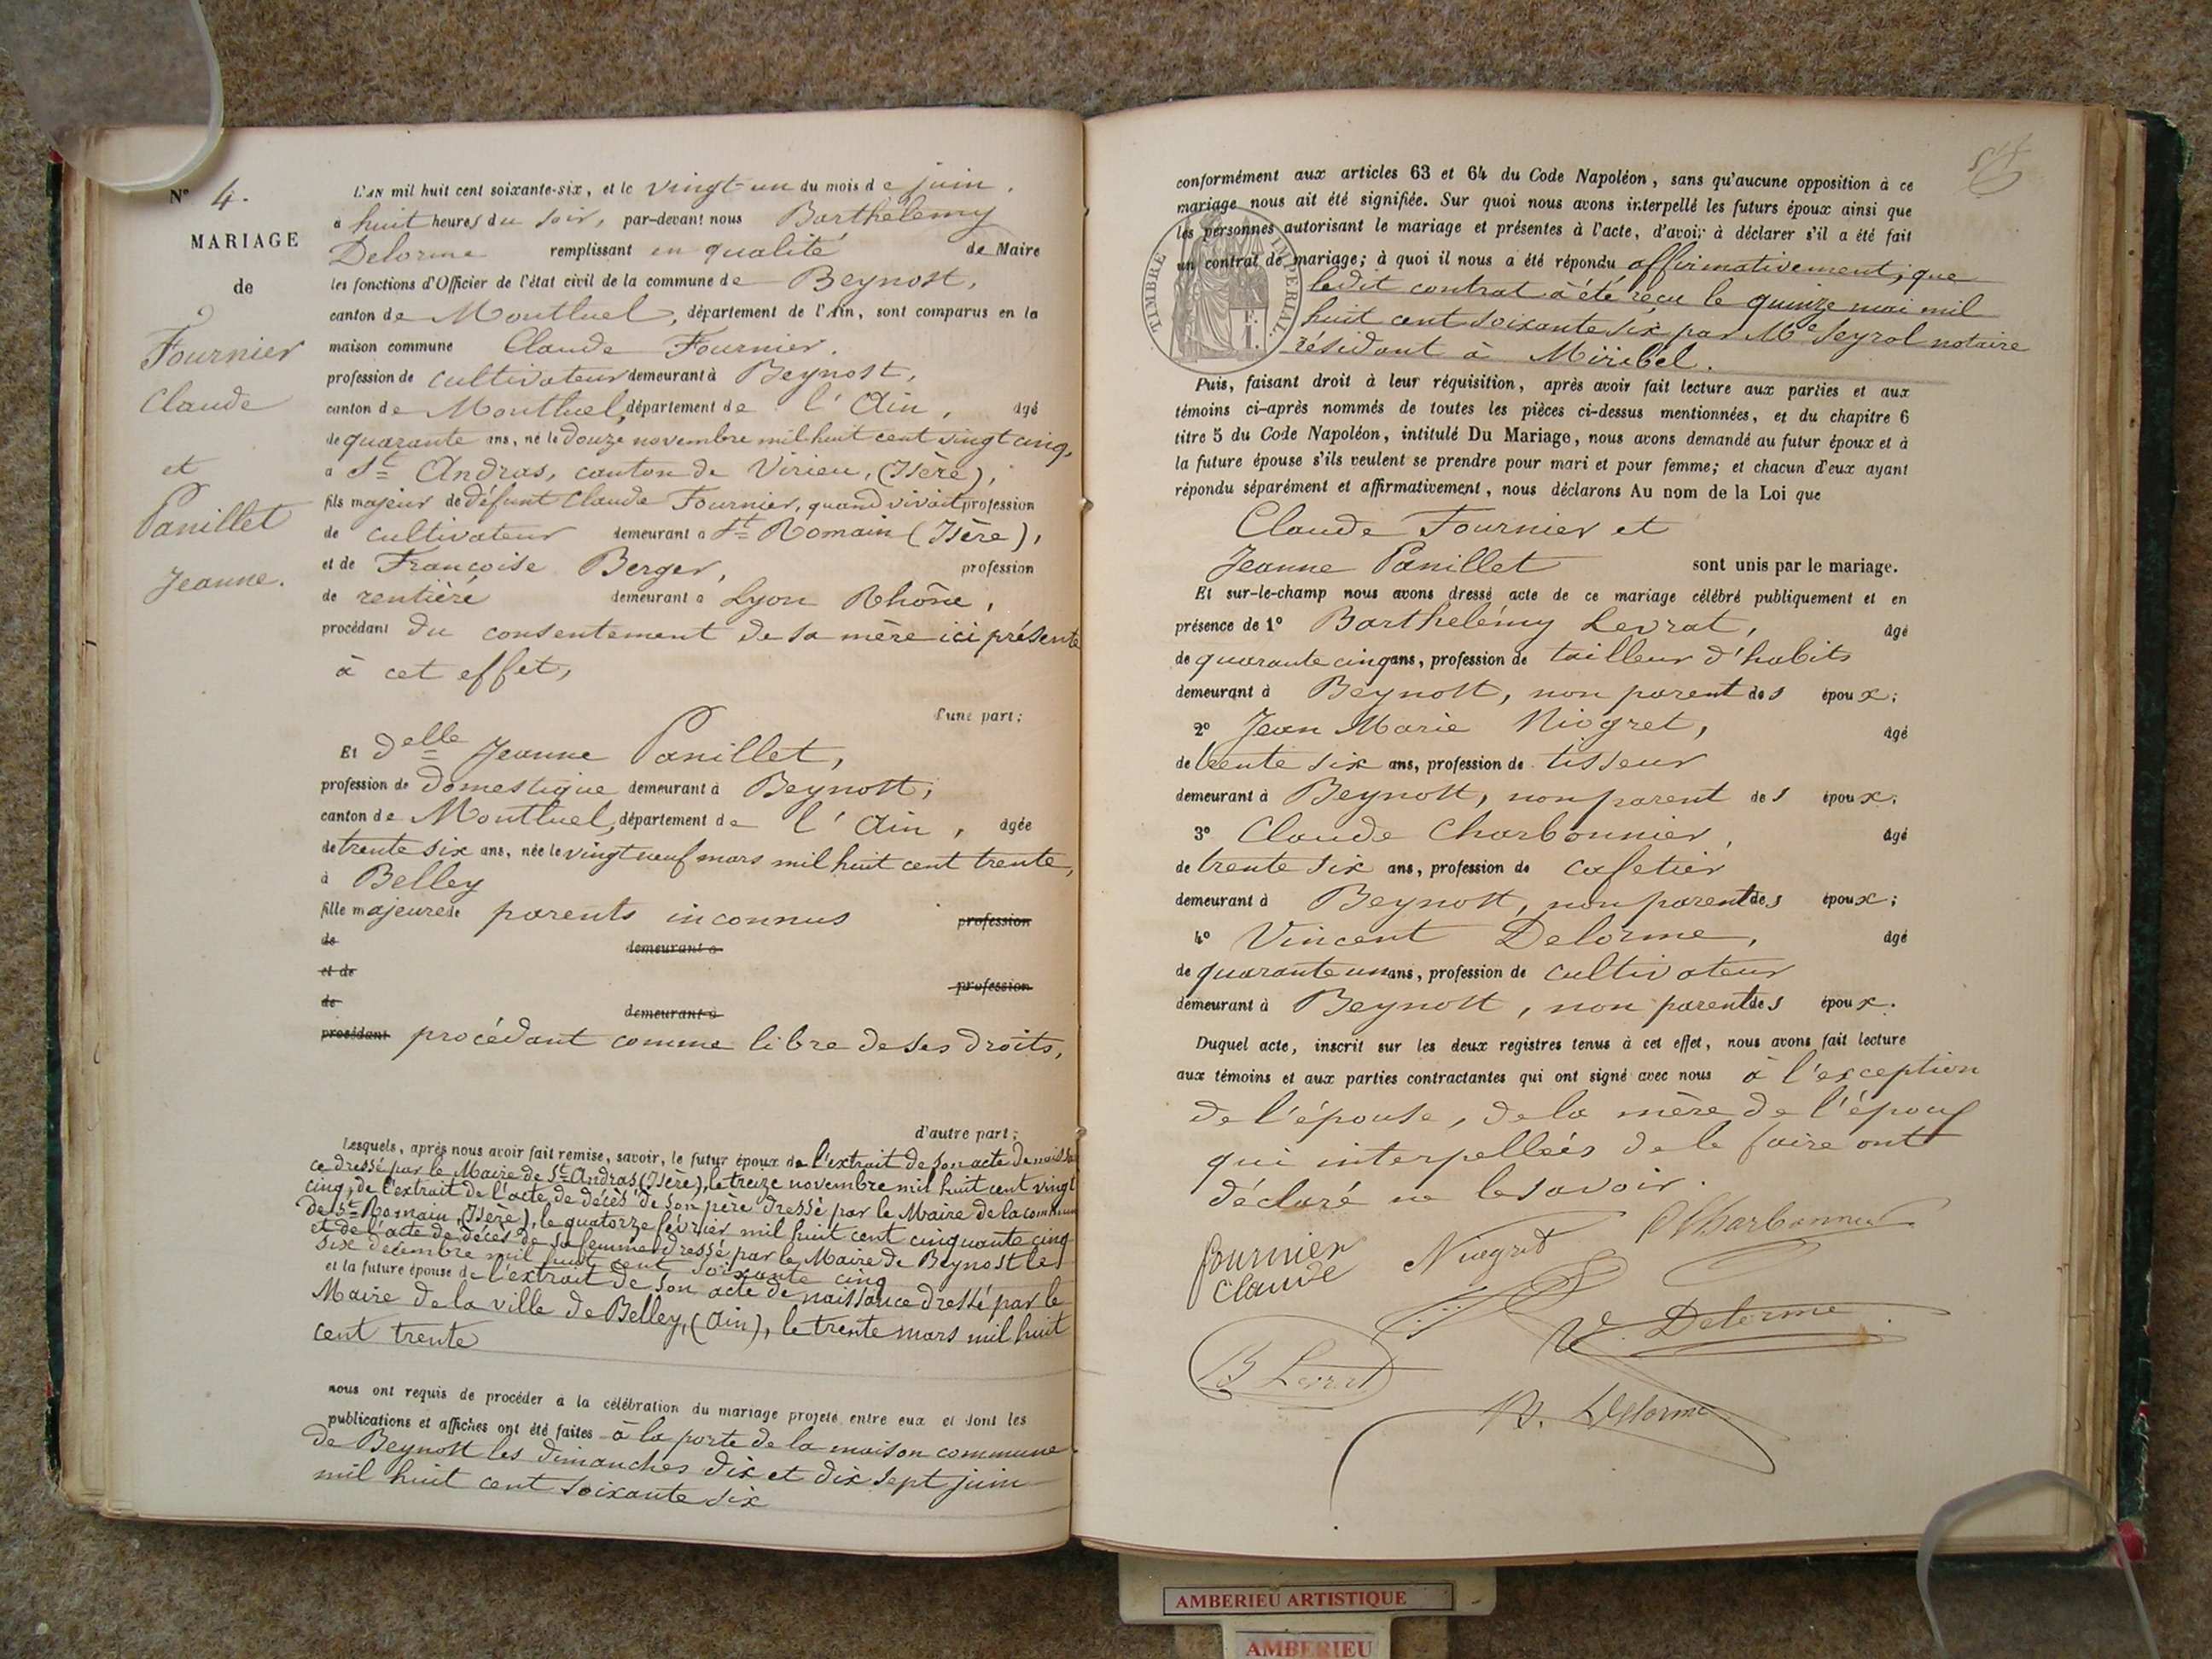 N° 4.
MARIAGE
de
Fournier
Claude
et
Panillet
Jeanne.
L'AN mil huit cent soixante-six, et le vingt-un du mois de juin,
à huit heures du soir, par-devant nous Barthelemy
Delorme remplissant en qualité de Maire
les fonctions d'Officier de l'état civil de la commune de Beynost,
canton de Montluel, département de l'Ain, sont comparus en la
maison commune Claude Fournier,
profession de cultivateur demeurant à Beynost,
canton de Montluel, département de l'Ain, âgé
de quarante ans, né le Douze novembre mil huit cent vingt cinq,
à St Andras, canton de Virieu, (Isère),
fils majeur de défunt Claude Fournier, quand vivait profession
de cultivateur demeurant à St Romain (Isère),
et de Françoise Berger, profession
de rentière demeurant à Lyon Rhône,
procédant du consentement de sa mère ici présente
à cet effet,
d'une part;
Et Delle Jeanne Panillet,
profession de Domestique demeurant à Beynost,
canton de Montluel, département de l'Ain, âgée
de trente six ans, née le vingt neuf mars mil huit cent trente,
à Belley
fille majeure de parents inconnus profession
de demeurant à
et de profession
de demeurant à
procédant procédant comme libre de ses droits,
d'autre part;
Lesquels, après nous avoir fait remise, savoir, le futur époux de l'extrait de son acte de naissan
ce dressé par le Maire de St Andras (Isère), le treize novembre mil huit cent vingt
cinq, de l'extrait de l'acte de décès de son père dressé par le Maire de la commune
de St Romain, (Isère), le quatorze février mil huit cent cinquante cinq
et de l'acte de décès de sa femme dressé par le Maire de Beynost le
six décembre mil huit cent soixante cinq
et la future épouse de l'extrait de son acte de naissance dressé par le
Maire de la ville de Belley, (Ain), le trente mars mil huit
cent trente
nous ont requis de procéder à la célébration du mariage projeté entre eux et dont les
publications et affiches ont été faites à la porte de la maison commune
de Beynost les dimanches dix et dix sept juin
mil huit cent soixante six
conformément aux articles 63 et 64 du Code Napoléon, sans qu'aucune opposition à ce
mariage nous ait été signifiée. Sur quoi nous avons interpellé les futurs époux ainsi que
les personnes autorisant le mariage et présentes à l'acte, d'avoir à déclarer s'il a été fait
un contrat de mariage; à quoi il nous a été répondu affirmativement, que
ledit contrat a été reçu le quinze mai mil
huit cent soixante six par Me Seyrol notaire
résidant à Miribel.
TIMBRE IMPÉRIAL.
Puis, faisant droit à leur réquisition, après avoir fait lecture aux parties et aux
témoins ci-après nommés de toutes les pièces ci-dessus mentionnées, et du chapitre 6
titre 5 du Code Napoléon, intitulé Du Mariage, nous avons demandé au futur époux et à
la future épouse s'ils veulent se prendre pour mari et pour femme; et chacun d'eux ayant
répondu séparément et affirmativement, nous déclarons Au nom de la Loi que
Claude Fournier et
Jeanne Panillet sont unis par le mariage.
Et sur-le-champ nous avons dressé acte de ce mariage célébré publiquement et en
présence de 1° Barthelémy Levrat, âgé
de quarante cinq ans, profession de tailleur d'habits
demeurant à Beynost, non parent des époux;
2° Jean Marie Niogret, âgé
de trente six ans, profession de tisseur
demeurant à Beynost, non parent des époux;
3° Claude Charbonnier, âgé
de trente six ans, profession de cafetier
demeurant à Beynost, non parent des époux;
4° Vincent Delorme, âgé
de quarante un ans, profession de cultivateur
demeurant à Beynost, non parent des époux.
Duquel acte, inscrit sur les deux registres tenus à cet effet, nous avons fait lecture
aux témoins et aux parties contractantes qui ont signé avec nous à l'exception
de l'épouse, de la mère de l'époux
qui interpellées de le faire ont
déclaré ne le savoir.
fournier
claude
Niogret
Charbonnier
B Levrat
V. Delorme
B. Delorme
AMBERIEU ARTISTIQUE
AMBERIEU